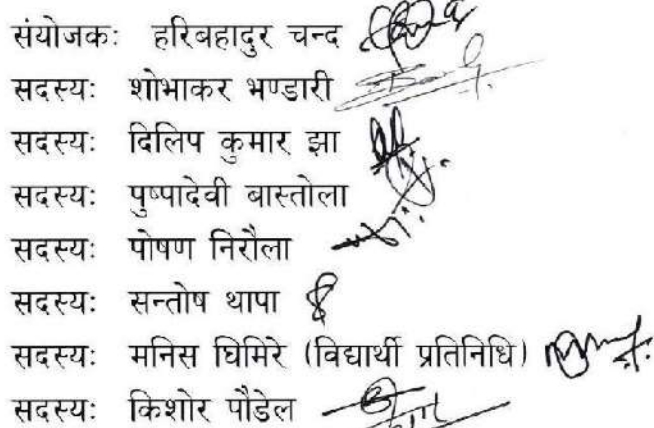 संयोजकः हरिबहादुर चन्द
सदस्यः शोभाकर भण्डारी
सदस्यः दिलिप कुमार झा
सदस्यः पुष्पादेवी बास्तोला
सदस्यः पोषण निरौला
सदस्यः सन्तोष थापा
सदस्यः मनिस घिमिरे (विद्यार्थी प्रतिनिधि)
सदस्यः किशोर पौडेल